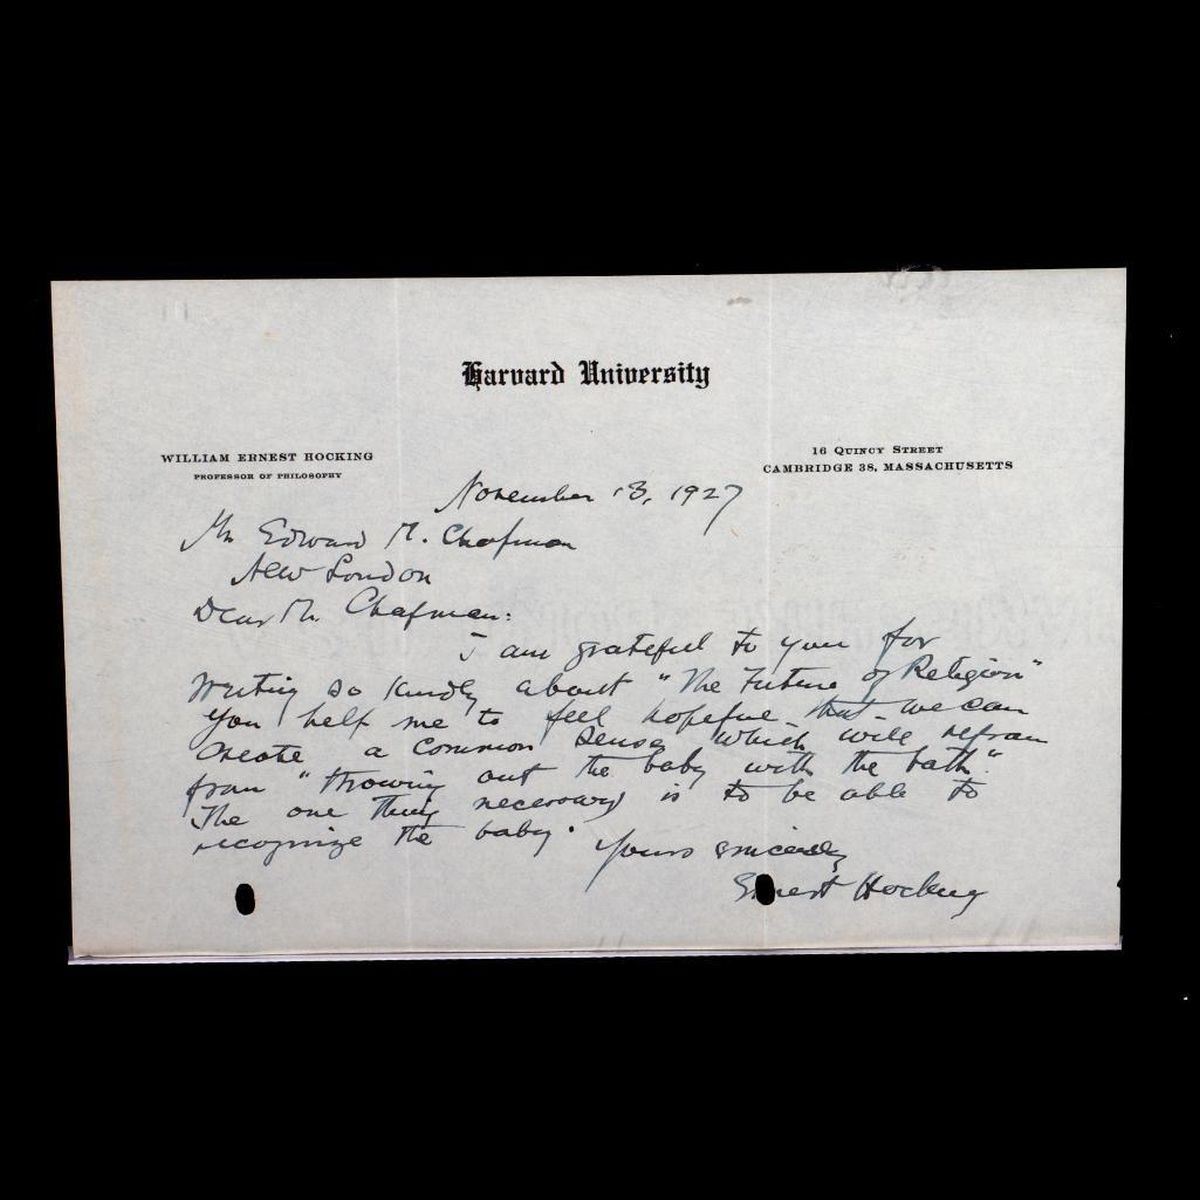 Harvard University
WILLIAM ERNEST HOCKING
PROFESSOR OF PHILOSOPHY
16 QUINCY STREET
CAMBRIDGE 38, MASSACHUSETTS
November 13, 1927
Mr Edward M. Chapman
New London
Dear Mr. Chapman:
I am grateful to you for
writing so kindly about "The Future of Religion"
You help me to feel hopeful - that - we can
create a common sense which will refrain
from "throwing out the baby with the bath."
The one thing necessary is to be able to
recognize the baby.
Yours sincerely
Ernest Hocking